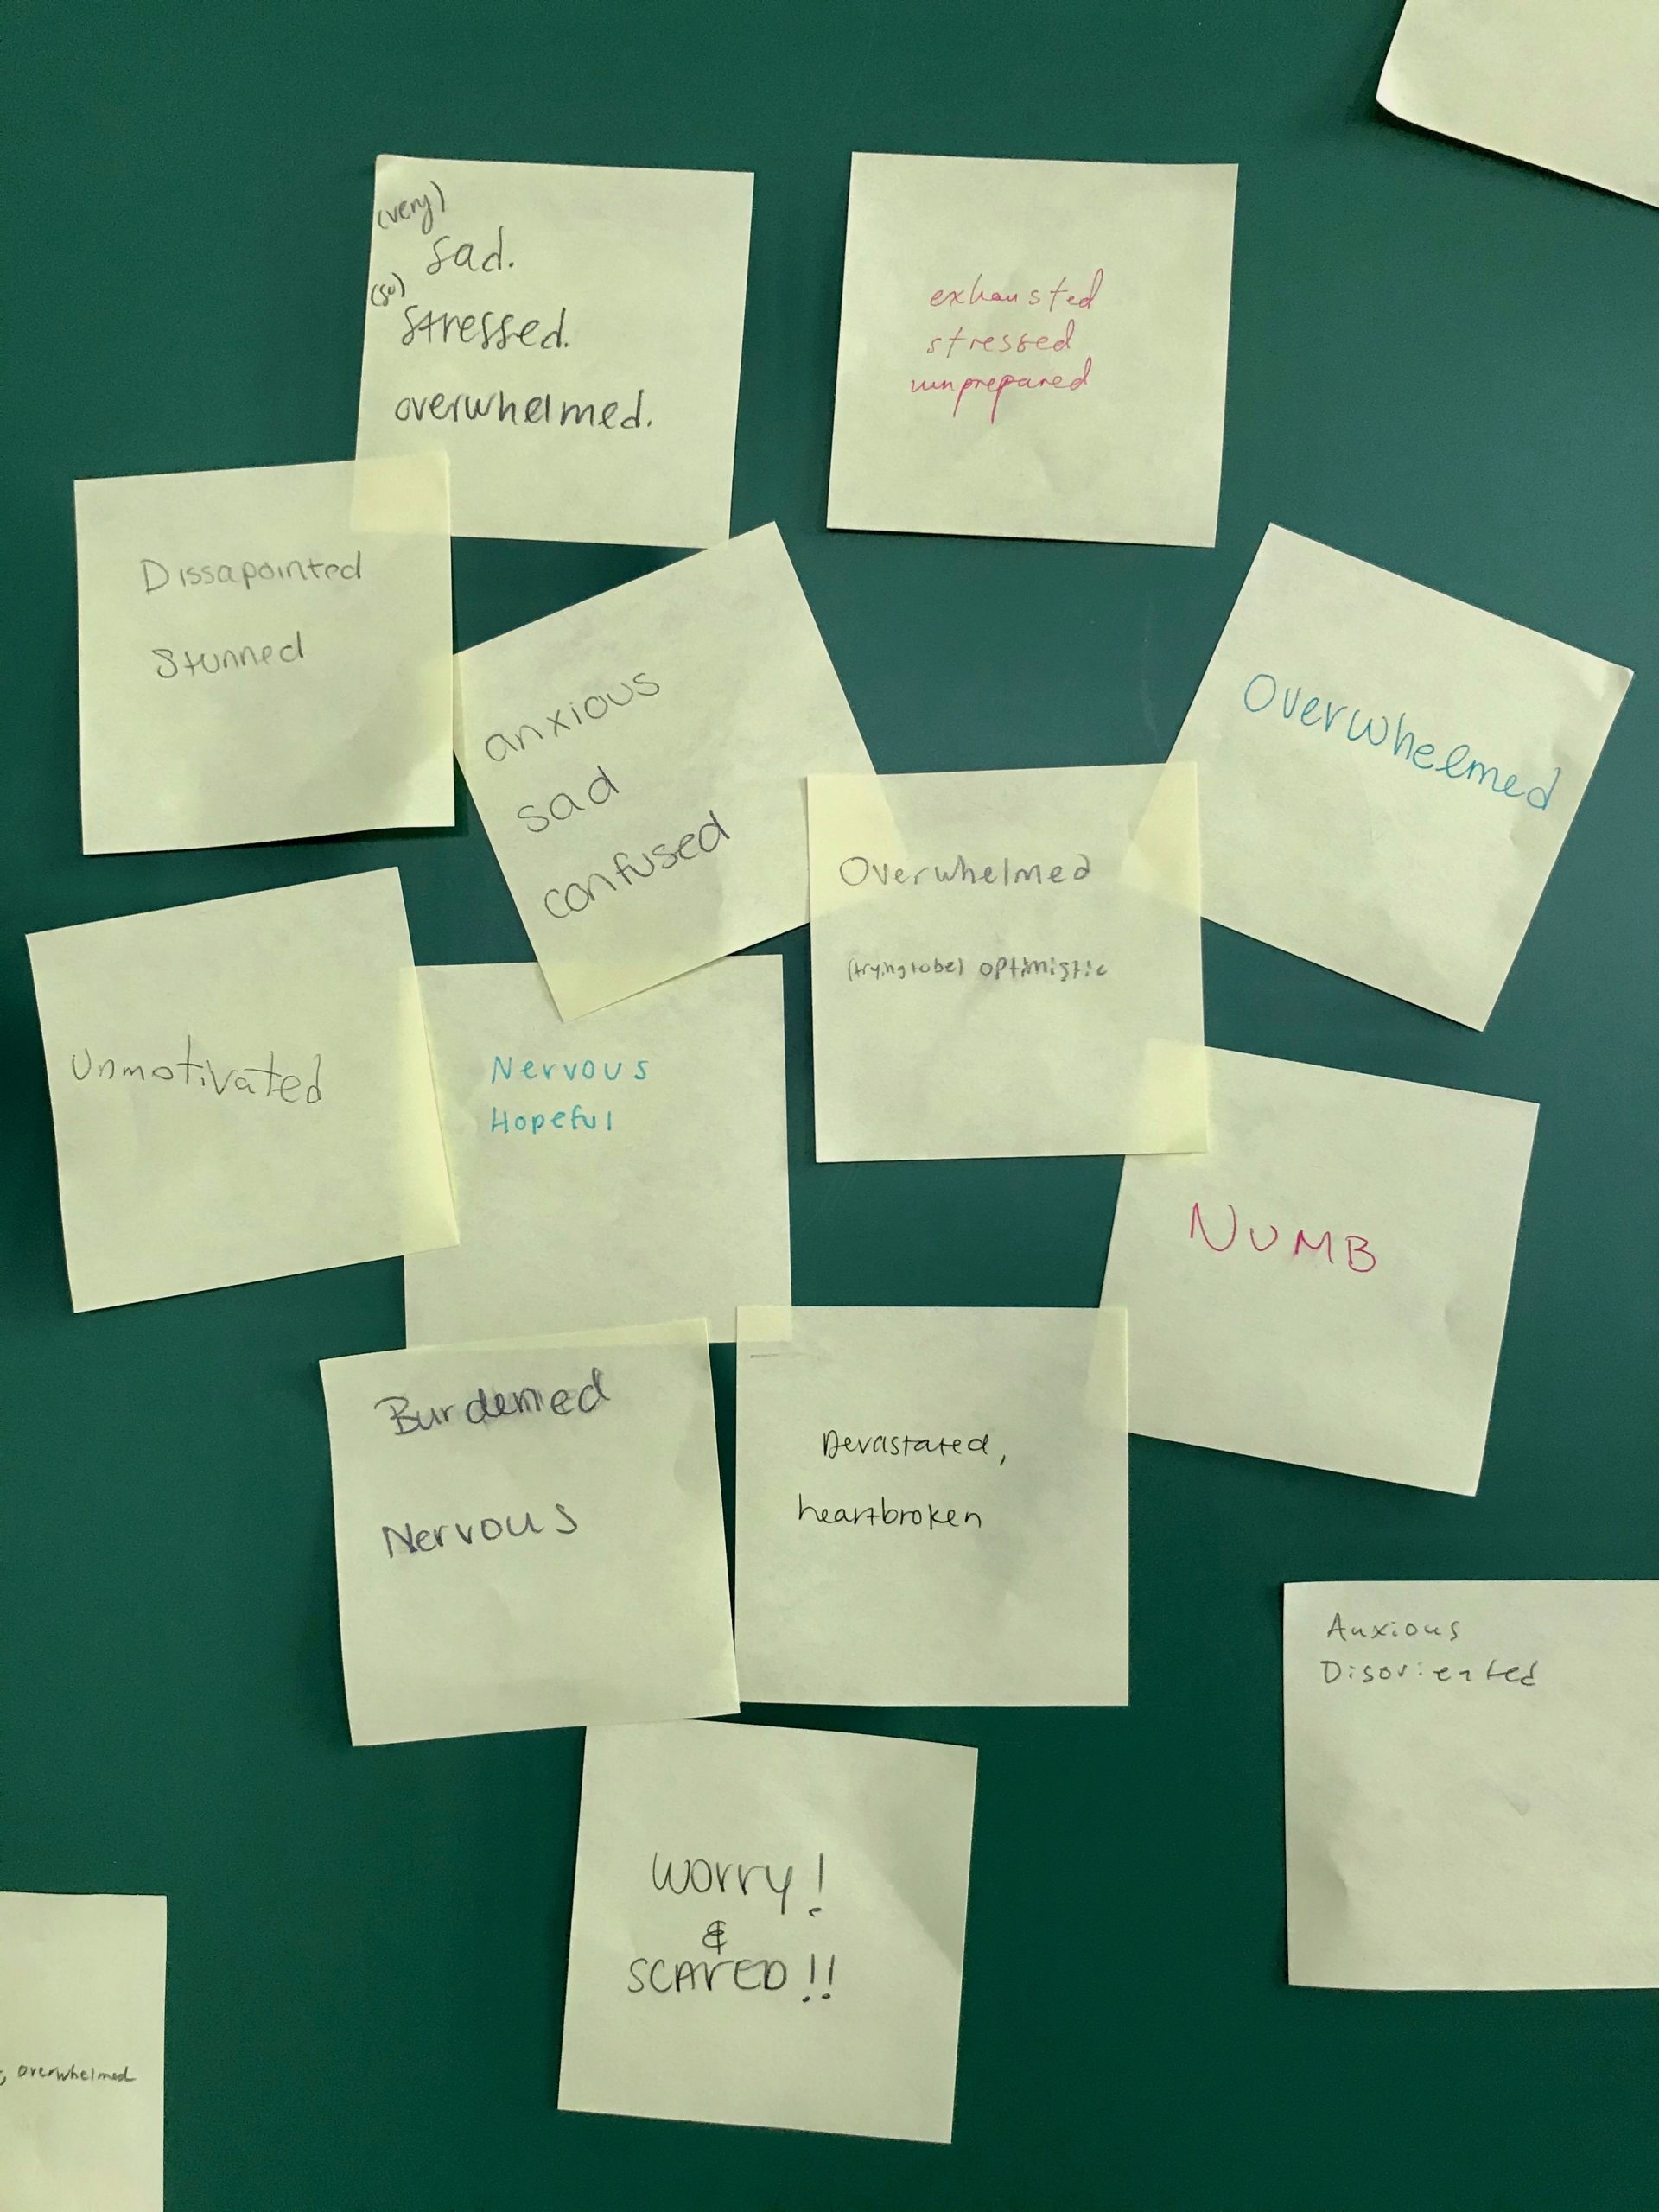 (very)
sad.
(so)
stressed.
overwhelmed.
exhausted
stressed
unprepared
Dissapointed
Stunned
anxious
sad
confused
Overwhelmed
Overwhelmed
(trying to be) optimistic
Unmotivated
Nervous
Hopeful
NUMB
Burdened
Nervous
Devastated,
heartbroken
Anxious
Disoriented
worry!
&
SCARED!!
, overwhelmed